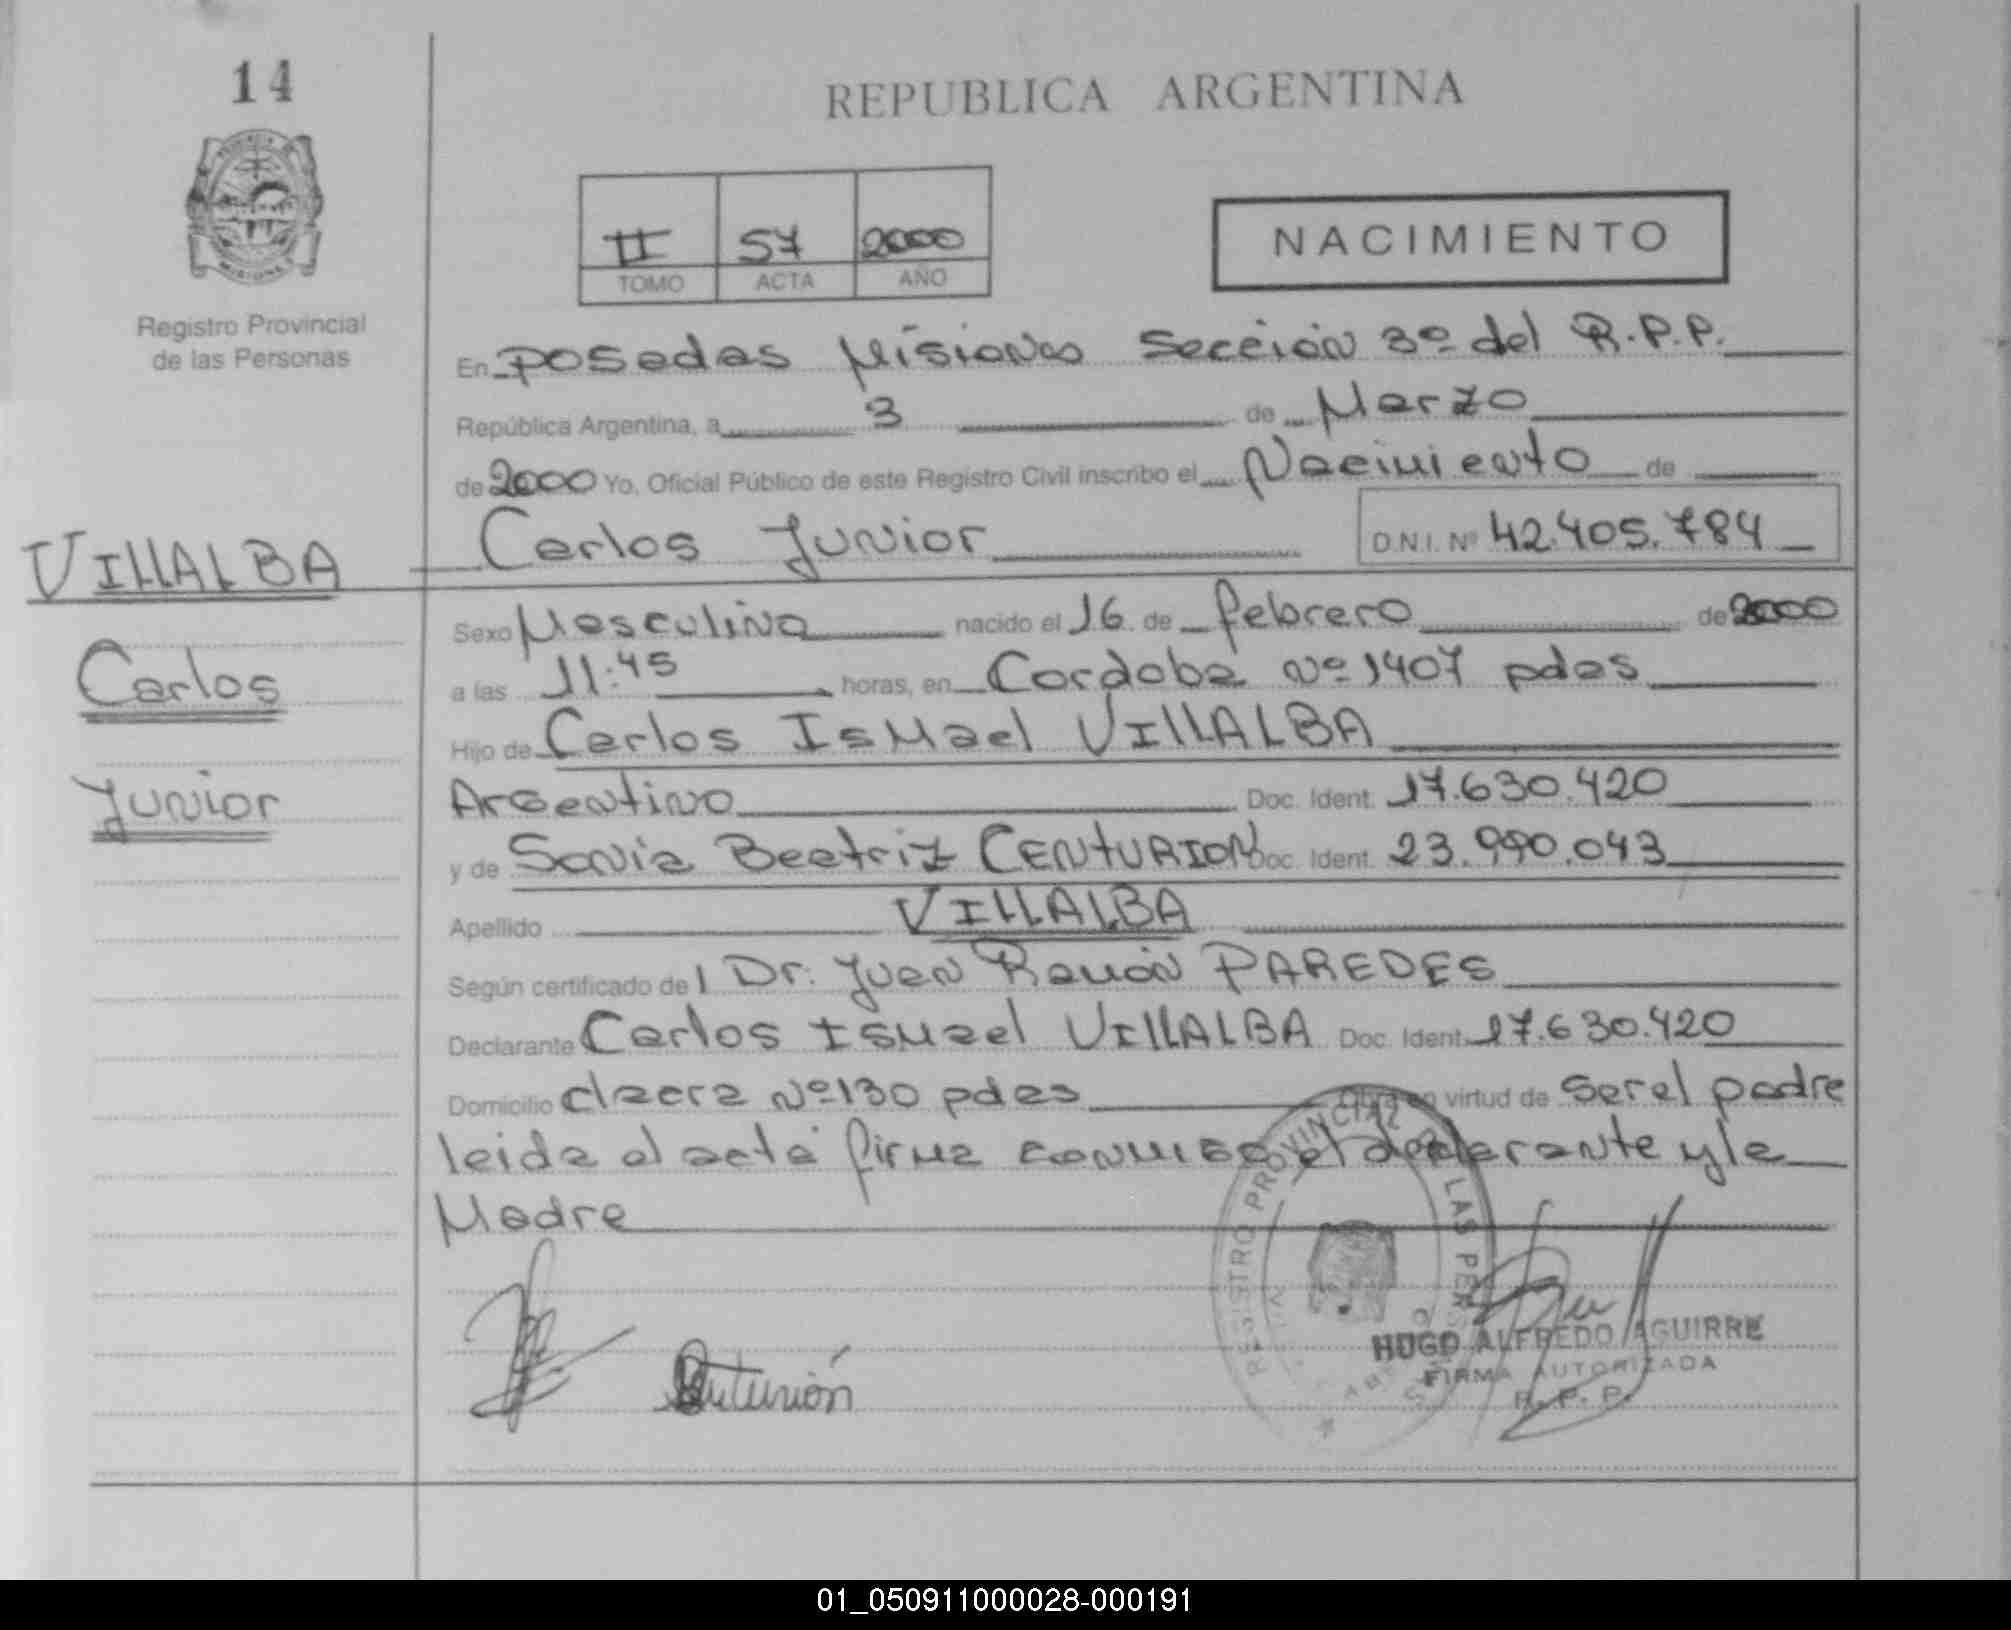 14
REPUBLICA ARGENTINA
PROVINCIA DE
MISIONES
II 57 2000
TOMO ACTA AÑO
NACIMIENTO
Registro Provincial
de las Personas
En Posadas Misiones Sección 3º del R.P.P.
República Argentina, a 3 de Marzo
de 2000 Yo, Oficial Público de este Registro Civil inscribo el Nacimiento de
VILLALBA Carlos Junior D.N.I. Nº 42.405.784
Sexo Masculino nacido el 16 de febrero de 2000
Carlos
a las 11:45 horas, en Cordoba Nº 1407 pdas
Hijo de Carlos Ismael VILLALBA
Junior
Argentino Doc. Ident. 17.630.420
y de Sonia Beatriz CENTURION Doc. Ident. 23.990.043
Apellido VILLALBA
Según certificado del Dr. Juan Ramón PAREDES
Declarante Carlos Ismael VILLALBA Doc. Ident. 17.630.420
Domicilio claera Nº 130 pdas virtud de ser el padre
leida el acta firma conmigo el declarante y la
Madre
REGISTRO PROVINCIAL LAS PERS
Centurión
HUGO ALFREDO AGUIRRE
FIRMA AUTORIZADA
R. P. P.
01_050911000028-000191